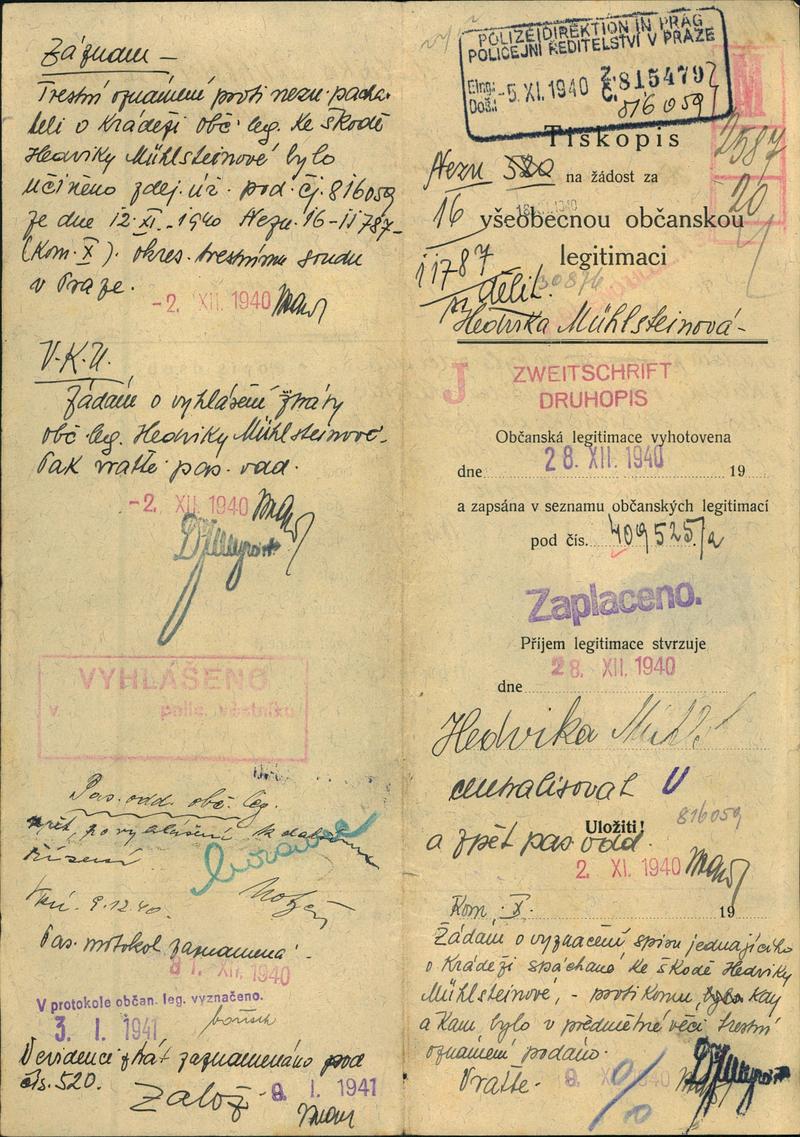 Záznam –
Trestní oznámení proti nezn. pacha-
teli o krádeži obč. leg. ke škodě
Hedviky Mühlsteinové bylo
učiněno zdej. úř. pod čj. 816059
ze dne 12. XI. 1940 Nezn. 16-11787-
(Kom. X). okres. trestnímu soudu
v Praze.
-2. XII. 1940
V.K.U.
Žádám o vyhlášení ztráty
obč. leg. Hedviky Mühlsteinové.
Pak vraťte pas. odd.
-2. XII. 1940
VYHLÁŠENO
v polic. věstníku
Pas. odd. obč. leg.
zpět, po vyhlášení k dalšímu
řízení
9.12.40.
Pas. protokol zaznamená.
31. XII. 1940
V protokole občan. leg. vyznačeno.
3. I. 1941
V evidenci ztrát zaznamenáno pod
čís. 520.
Založ 9. I. 1941
POLIZEIDIREKTION IN PRAG
POLICEJNÍ ŘEDITELSTVÍ V PRAZE
Eing.: Došl.: -5. XI. 1940 Z. Č. 815479
816059
M
2587
20
Tiskopis
Nezn 520 na žádost za
16 všeobecnou občanskou
11787 legitimaci
sdělit. 30876
Hedvika Mühlsteinová-
J ZWEITSCHRIFT
DRUHOPIS
Občanská legitimace vyhotovena
dne 28. XII. 1940 19
a zapsána v seznamu občanských legitimací
pod čís. 409525/a
Zaplaceno.
Příjem legitimace stvrzuje
28. XII. 1940
dne
Hedvika Mühl
centralisovat U
Uložiti! 816059
a zpět pas. odd.
2. XI. 1940
Kom. X. 19
Žádám o vyznačení spisu jednajícího
o krádeži spáchané ke škodě Hedviky
Mühlsteinové, - proti komu, kdy
a kam bylo v předmětné věci trestní
oznámení podáno.
Vraťte. 1940